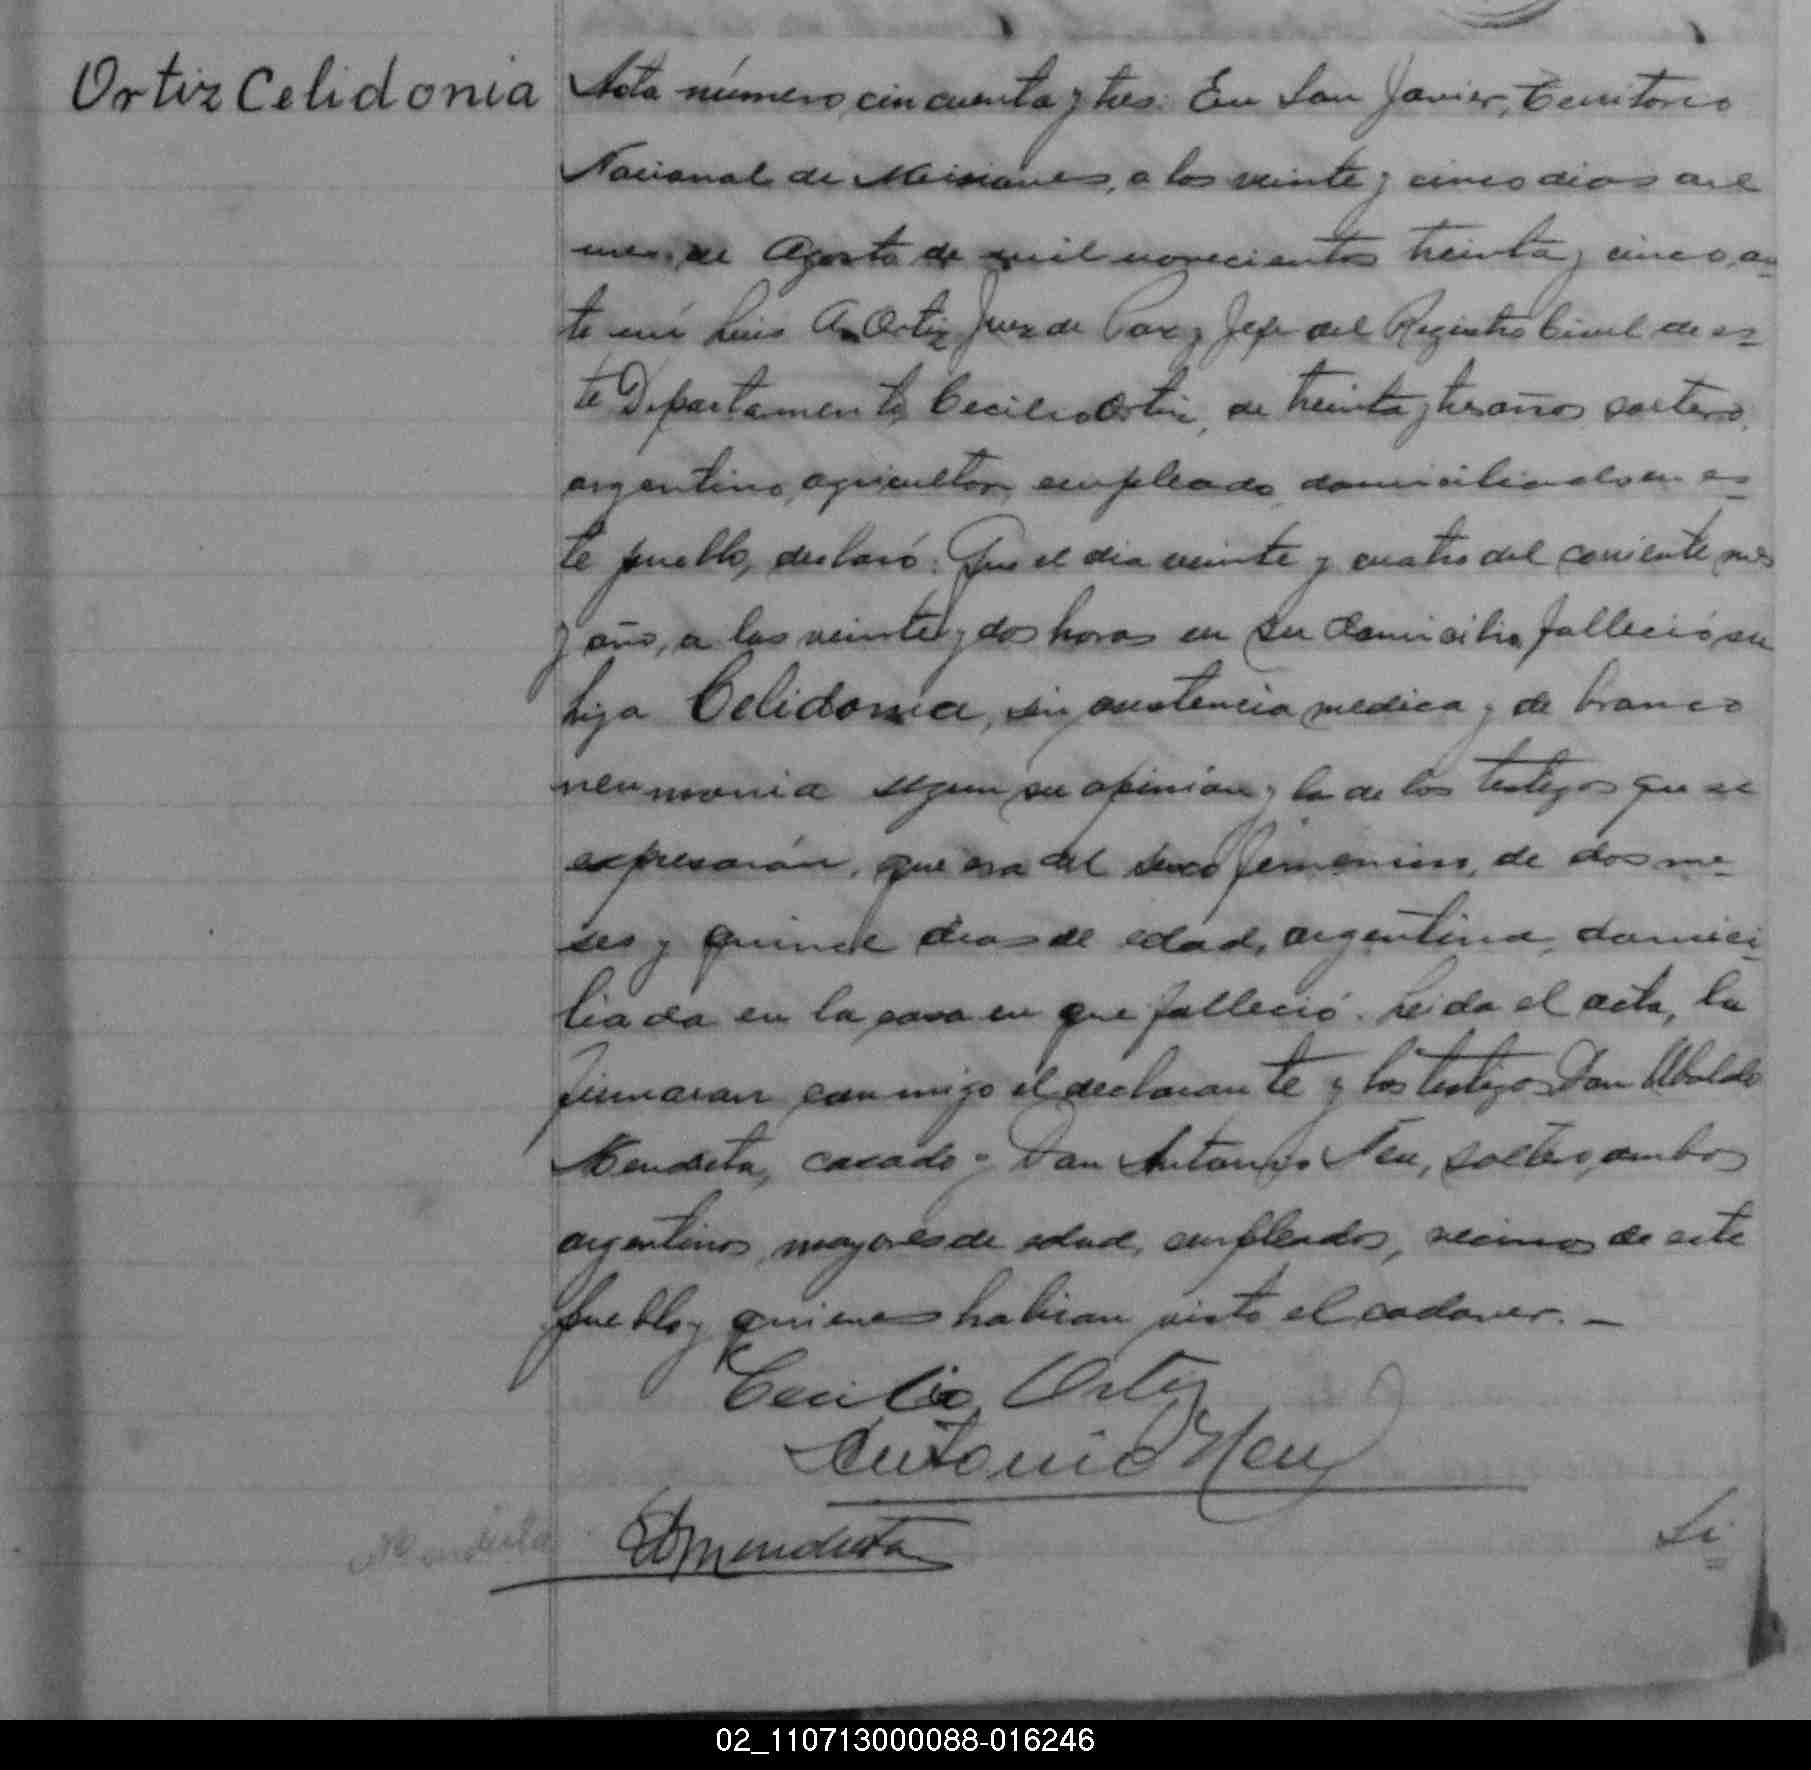 Ortiz Celidonia
Acta número cincuenta y tres. En San Javier, Territorio
Nacional de Misiones, a los veinte y cinco dias del
mes de Agosto de mil novecientos treinta y cinco, an-
te mí Luis A. Ortiz Juez de Paz y Jefe del Registro Civil de es-
te Departamento, Cecilio Ortiz, de treinta y tres años, soltero,
argentino, agricultor, empleado, domiciliado en es-
te pueblo, declaró: Que el dia veinte y cuatro del corriente mes
y año, a las veinte y dos horas en su domicilio, falleció su
hija Celidonia, sin asistencia medica y de bronco
neumonia segun su opinion y la de los testigos que se
expresarán, que era del sexo femenino, de dos me-
ses y quince dias de edad, argentina, domici-
liada en la casa en que falleció. Leida el acta, la
firmaron conmigo el declarante y los testigos Don Ubaldo
Mendieta, casado y Don Antonio Neu, soltero, ambos
argentinos, mayores de edad, empleados, vecinos de este
pueblo y quienes habian visto el cadaver. —
Cecilio Ortiz
Antonio Neu
Mendieta
Mendieta
Si
02_110713000088-016246